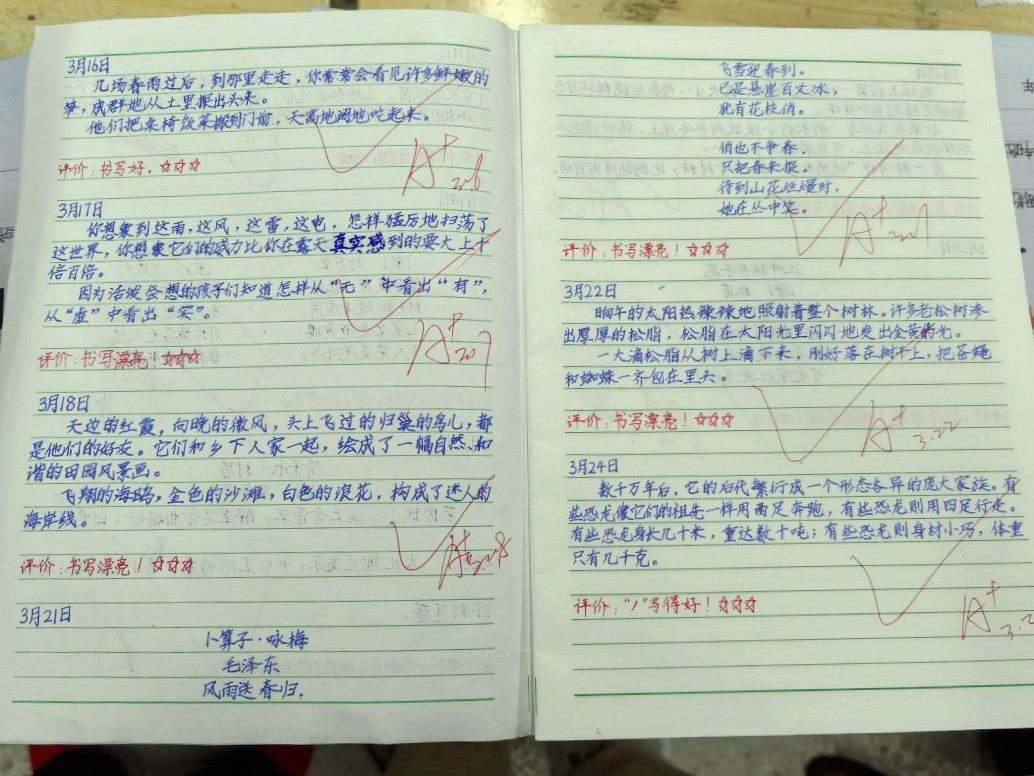 3月16日
几场春雨过后，到那里走走，你常常会看见许多鲜嫩的
笋，成群地从土里探出头来。
他们把桌椅饭菜搬到门前，天高地阔地吃起来。
评价：书写好。☆☆☆
A+
3月17日
你想象到这雨，这风，这雷，这电，怎样猛厉地扫荡了
这世界，你想象它们的威力比你在露天真实感到的要大上十
倍百倍。
因为活泼会想的孩子们知道怎样从“无”中看出“有”，
从“虚”中看出“实”。
评价：书写漂亮！☆☆☆
A+
3月18日
天边的红霞，向晚的微风，头上飞过的归巢的鸟儿，都
是他们的好友。它们和乡下人家一起，绘成了一幅自然、和
谐的田园风景画。
飞翔的海鸥，金色的沙滩，白色的浪花，构成了迷人的
海岸线。
评价：书写漂亮！☆☆☆
A+
3月21日
卜算子·咏梅
毛泽东
风雨送春归，
飞雪迎春到。
已是悬崖百丈冰，
犹有花枝俏。
俏也不争春，
只把春来报。
待到山花烂熳时，
她在丛中笑。
评价：书写漂亮！☆☆☆
A+
3月22日
晌午的太阳热辣辣地照射着整个树林。许多老松树渗
出厚厚的松脂，松脂在太阳光里闪闪地发出金黄的光。
一大滴松脂从树上滴下来，刚好落在树干上，把苍蝇
和蜘蛛一齐包在里头。
评价：书写漂亮！☆☆☆
A+
3.22
3月24日
数千万年后，它的后代繁衍成一个形态各异的庞大家族。有
些恐龙像它们的祖先一样用两足奔跑，有些恐龙则用四足行走。
有些恐龙身长几十米，重达数十吨；有些恐龙则身材小巧，体重
只有几千克。
评价：“丿”写得好！☆☆☆
A+